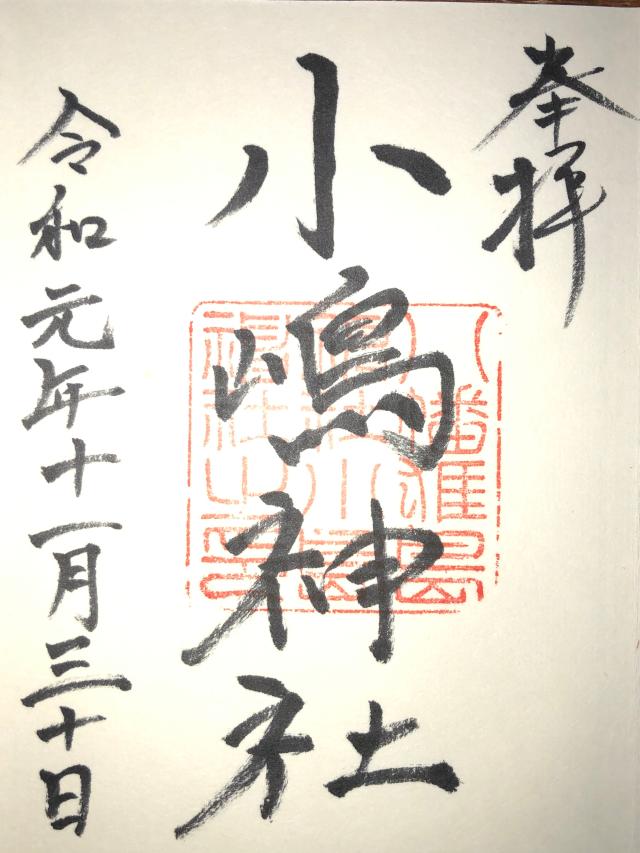 奉拝
小嶋神社
令和元年十一月三十日